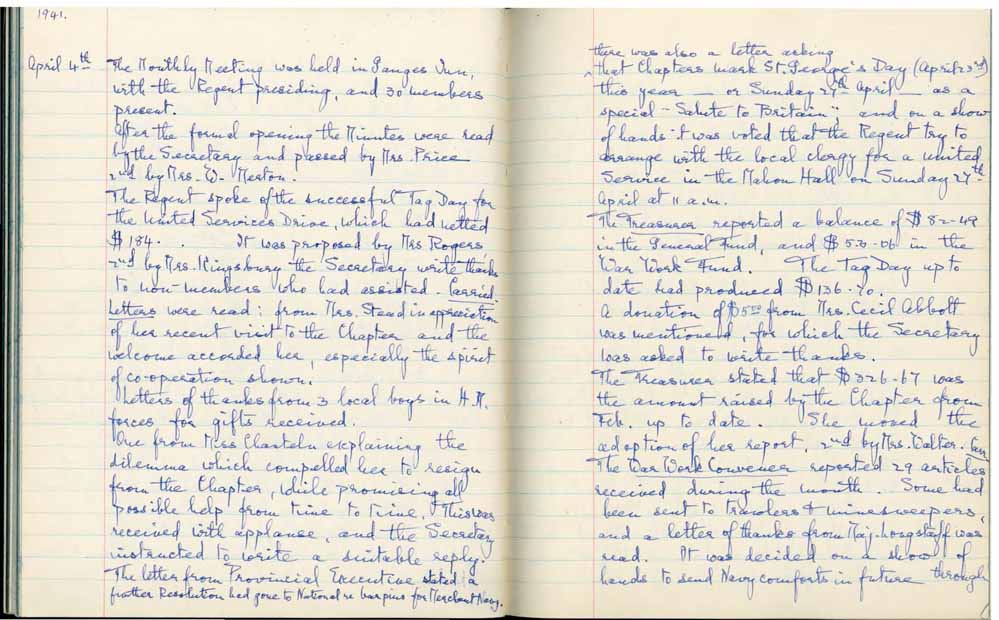 1941.
April 4th The Monthly Meeting was held in Ganges Inn,
with the Regent presiding, and 30 members
present.
After the formal opening the Minutes were read
by the Secretary and passed by Mrs. Price
2nd by Mrs. W. Merton.
The Regent spoke of the successful Tag Day for
the United Services Drive, which had netted
$184. . It was proposed by Mrs Rogers
2nd by Mrs. Kingsbury the Secretary write thanks
to non-members who had assisted. Carried.
Letters were read: from Mrs. Stead in appreciation
of her recent visit to the Chapter and the
welcome accorded her, especially the spirit
of co-operation shown.
Letters of thanks from 3 local boys in H.M.
forces for gifts received.
One from Miss explaining the
dilemma which compelled her to resign
from the Chapter, while promising all
possible help from time to time. This was
received with applause, and the Secretary
instructed to write a suitable reply.
The letter from Provincial Executive stated: a
further Resolution had gone to National re bar pins for Merchant Navy.
there was also a letter asking
that Chapters mark St. George's Day (April 23rd)
this year — or Sunday 27th April — as a
special "Salute to Britain", and on a show
of hands it was voted that the Regent try to
arrange with the local clergy for a united
Service in the Mahon Hall on Sunday 27th
April at 11 a.m.
The Treasurer reported a balance of $82-49
in the General Fund, and in the
War Work Fund. The Tag Day up to
date had produced $136-20.
A donation of $5 from Mrs. Cecil Abbott
was mentioned, for which the Secretary
was asked to write thanks.
The Treasurer stated that $326-67 was
the amount raised by the Chapter from
Feb. up to date. She moved the
adoption of her report, 2nd by Mrs. Walter. Carr
The War Work Convener reported 29 articles
received during the month. Some had
been sent to trawlers & minesweepers,
and a letter of thanks from Maj. Longstaff was
read. It was decided on a show of
hands to send Navy comforts in future through